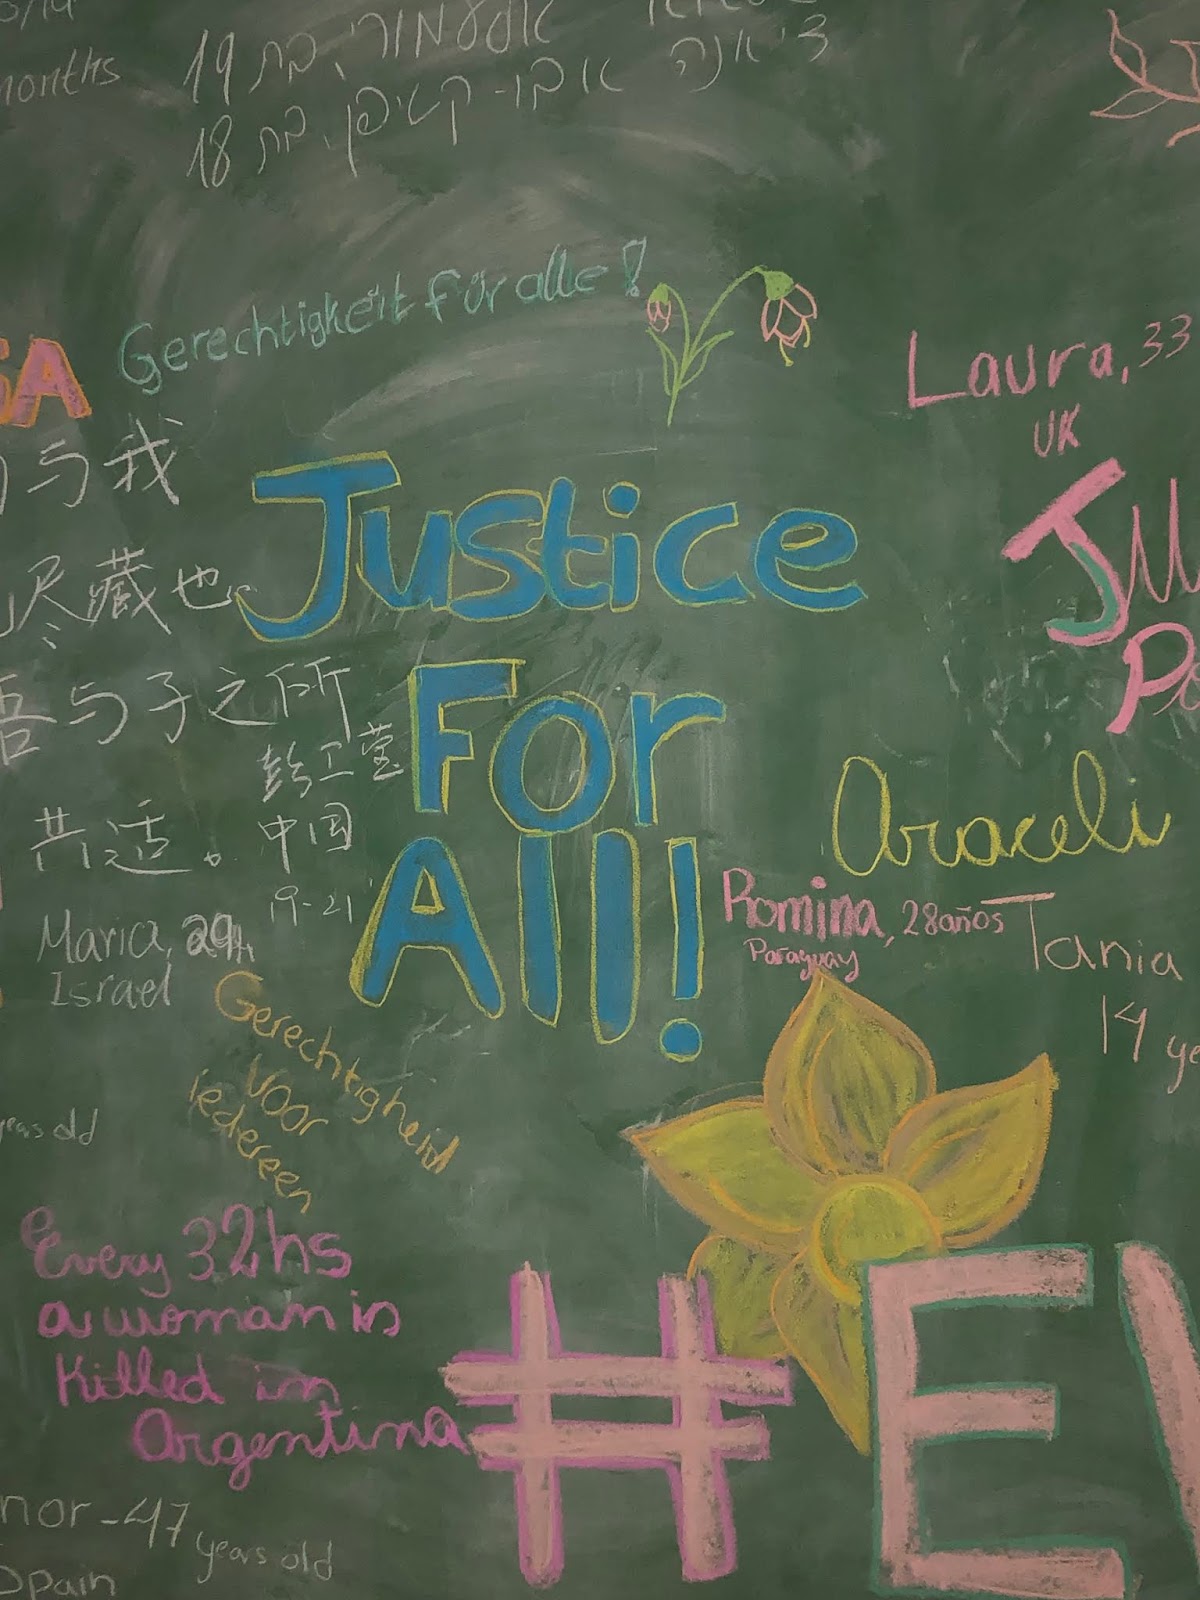 months
בת 19
דיאנה אבו-קטיפן, בת 18
Gerechtigkeit für alle!
Laura, 33
UK
与我
尽藏也。
吾与子之所
共适。
彭卫莹
中国
19-21
Justice
For
All!
Araceli
Romina, 28 años
Paraguay
Tania
14
Maria, 29
Israel
Gerechtigheid
voor
iedereen
years old
Every 32hs
a woman is
Killed in
Argentina
nor - 47 years old
Spain
#E